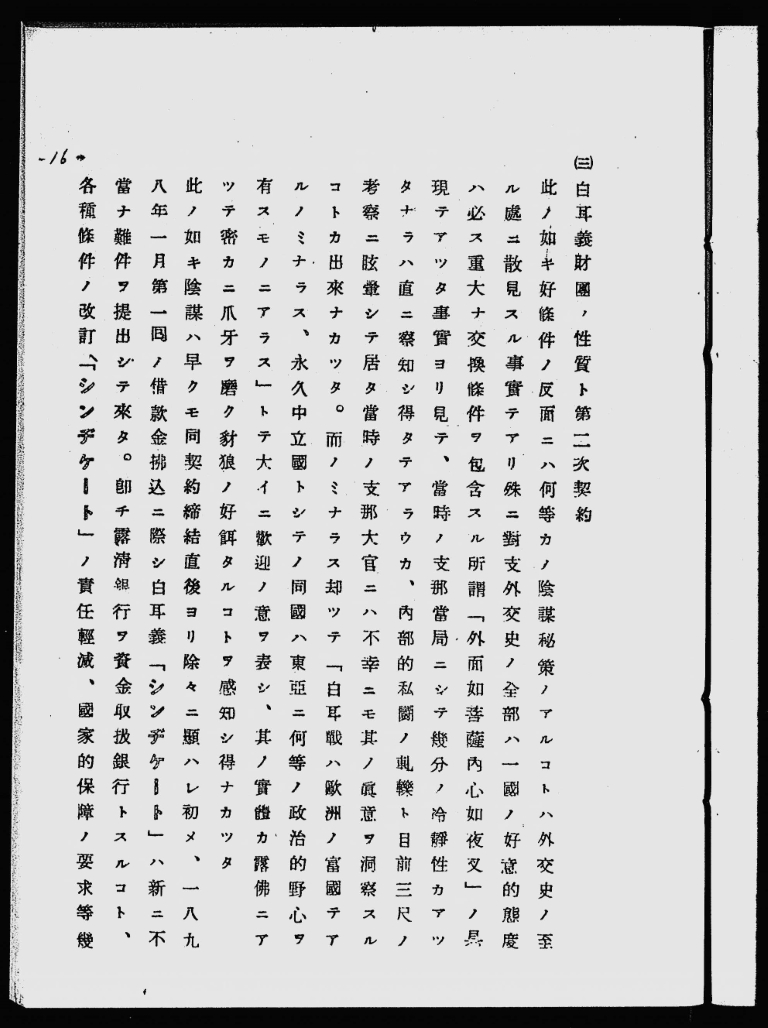 ㈢白耳義財團ノ性質ト第二次契約
此ノ如キ好條件ノ反面ニハ何等カノ陰謀秘策ノアルコトハ外交史ノ至
ル處ニ散見スル事實テアリ殊ニ對支外交史ノ全部ハ一國ノ好意的態度
ハ必ス重大ナ交換條件ヲ包含スル所謂「外面如菩薩內心如夜叉」ノ具
現テアツタ事實ヨリ見テ、當時ノ支那當局ニシテ幾分ノ冷靜性カアツ
タナラハ直ニ察知シ得タテアラウカ、內部的私鬪ノ軋轢ト目前三尺ノ
考察ニ眩暈シテ居タ當時ノ支那大官ニハ不幸ニモ其ノ眞意ヲ洞察スル
コトカ出來ナカツタ。而ノミナラス却ツテ「白耳戰ハ歐洲ノ富國テア
ルノミナラス、永久中立國トシテノ同國ハ東亞ニ何等ノ政治的野心ヲ
有スモノニアラス」トテ大イニ歡迎ノ意ヲ表シ、其ノ實體カ露佛ニア
ツテ密カニ爪牙ヲ磨ク豺狼ノ好餌タルコトヲ感知シ得ナカツタ
此ノ如キ陰謀ハ早クモ同契約締結直後ヨリ除々ニ顯ハレ初メ、一八九
八年一月第一囘ノ借款金拂込ニ際シ白耳義「シンヂケート」ハ新ニ不
當ナ難件ヲ提出シテ來タ。卽チ露淸銀行ヲ資金取扱銀行トスルコト、
各種條件ノ改訂、「シンヂケート」ノ責任輕減、國家的保障ノ要求等幾
-16-